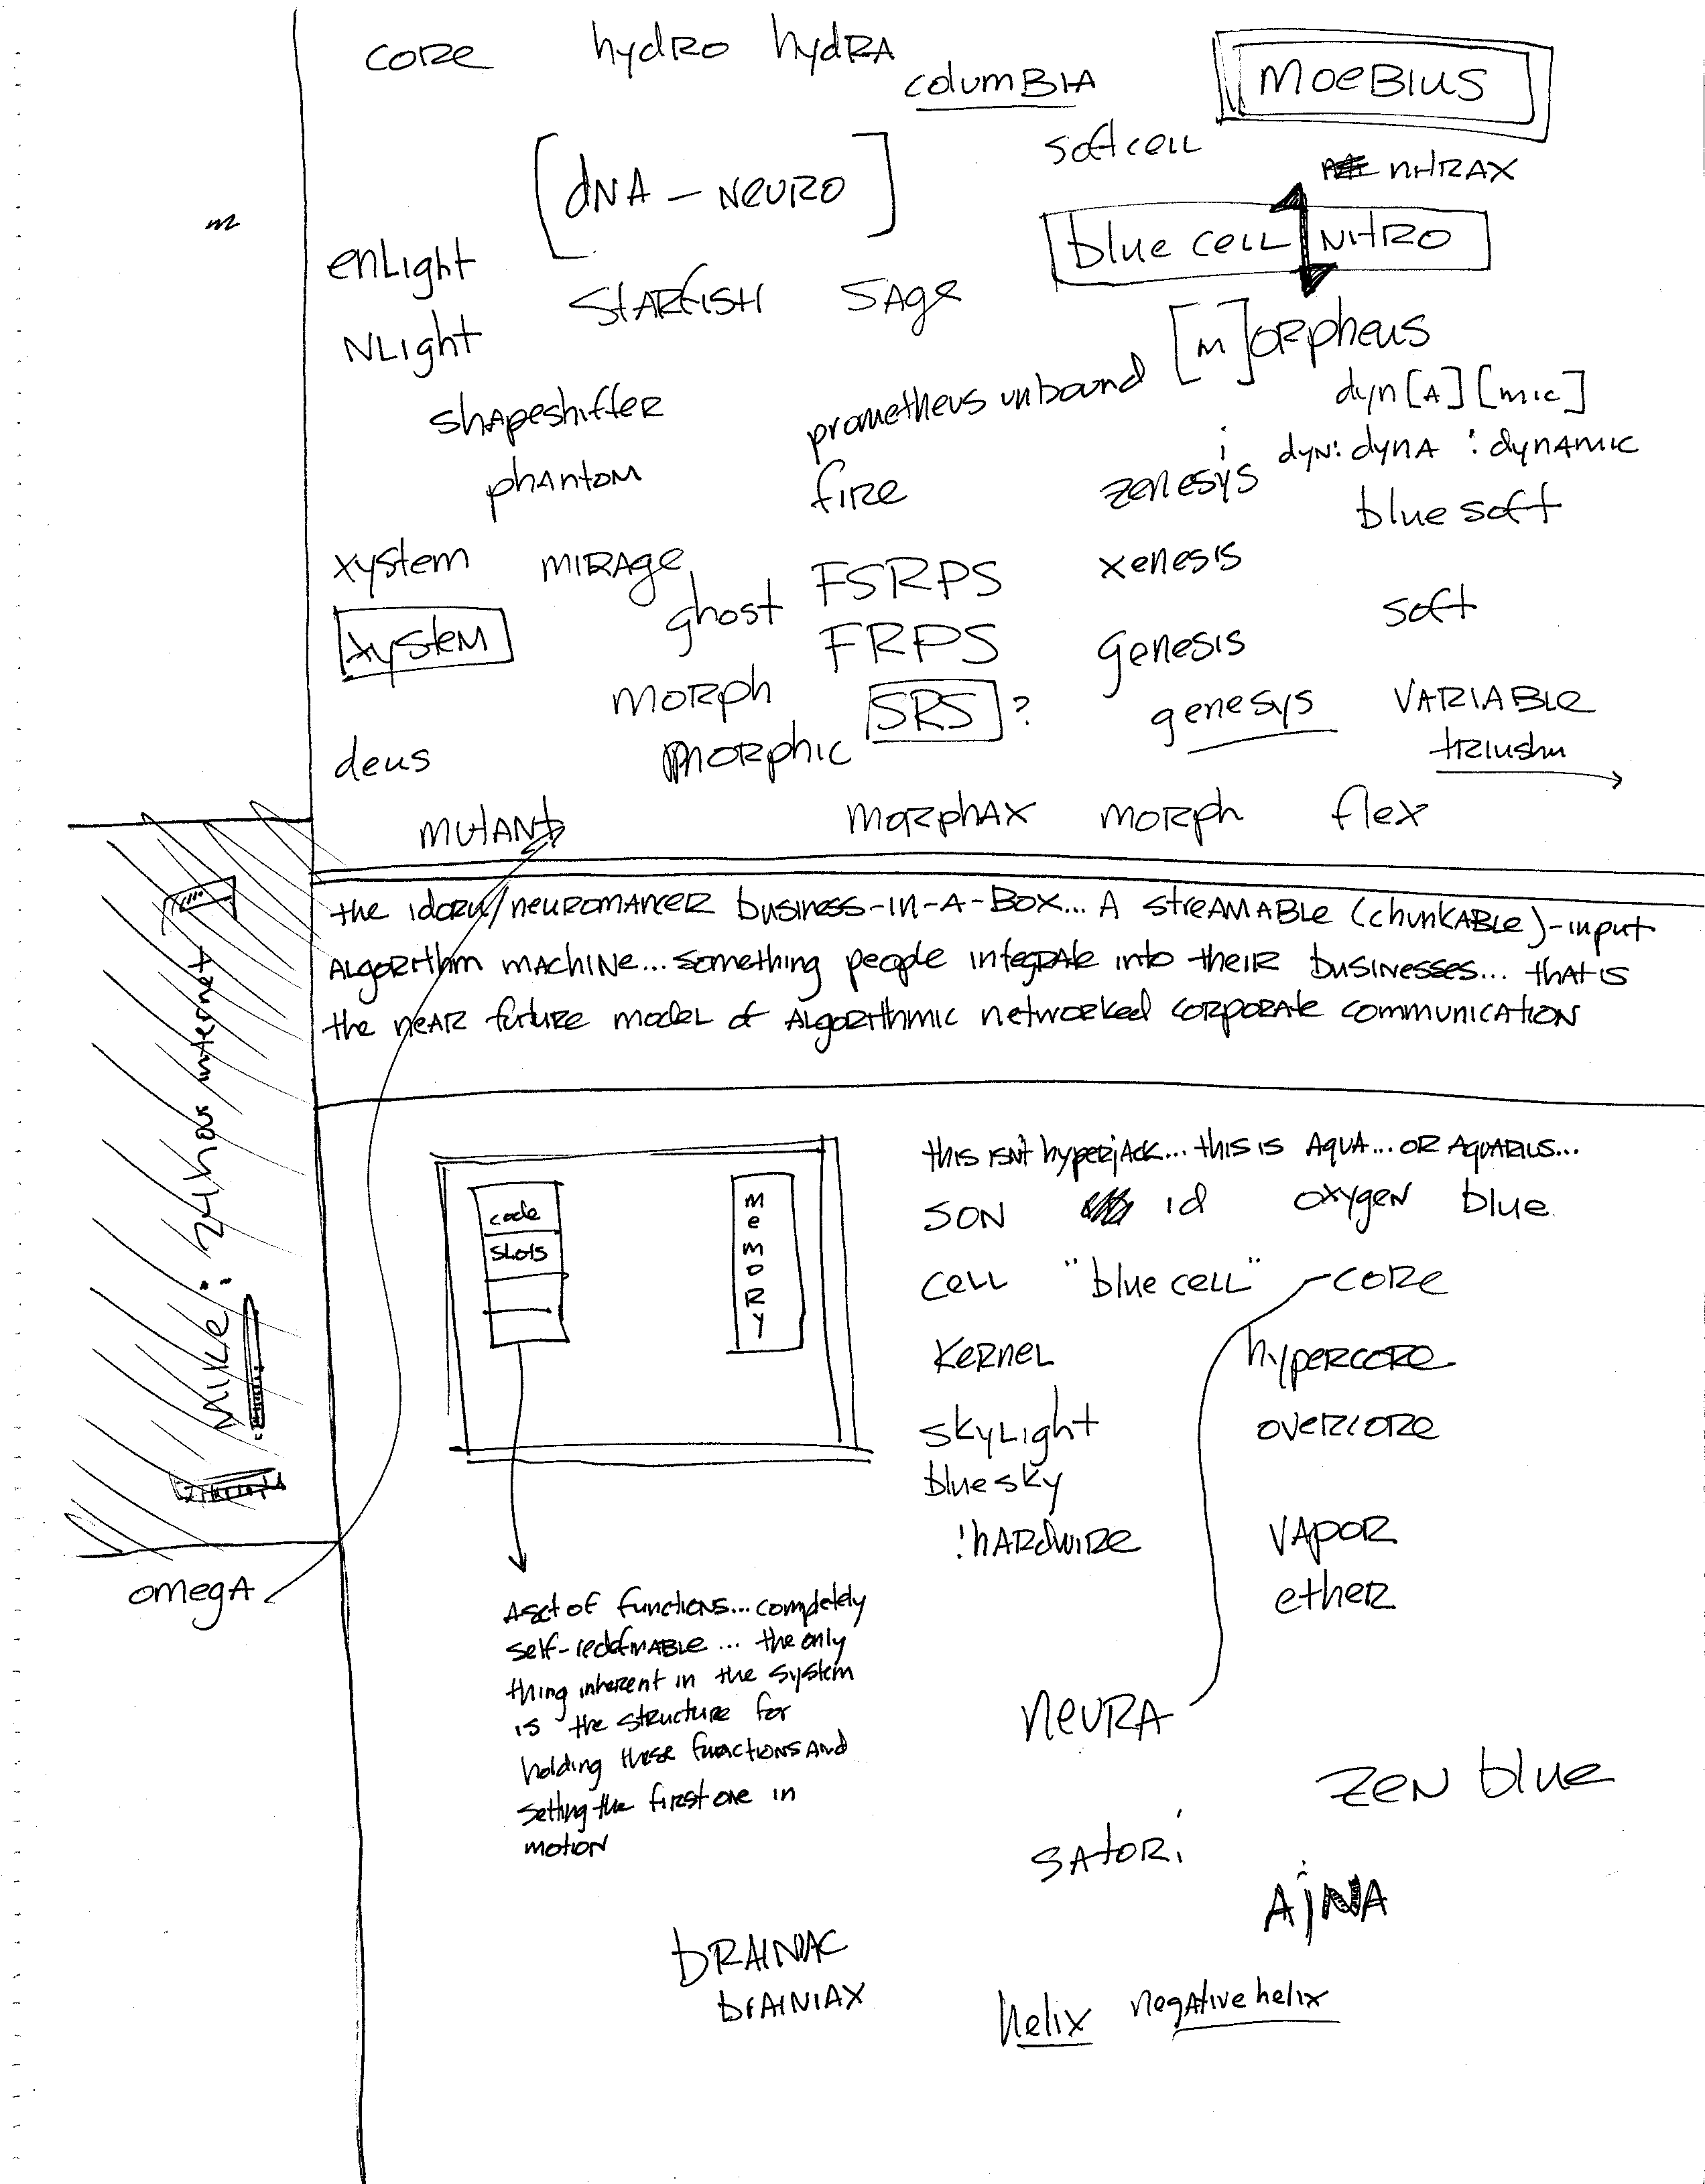 core hydro hydra
columbia
moebius
[dna - neuro]
softcell
nitrax
blue cell nitro
m
enlight
starfish sage
[m]orpheus
nlight
prometheus unbound
dyn[a][mic]
shapeshifter
dyn: dyna : dynamic
phantom
fire
zenesys
i
blue soft
xystem mirage
xenesis
ghost FSRPS
soft
xystem
FRPS
genesis
morph
SRS ?
genesys
variable
deus
morphic
mutant
morphax morph flex
the idoru/neuromancer business-in-a-box... a streamable (chunkable)-input
algorithm machine... something people integrate into their businesses... that is
the near future model of algorithmic networked corporate communication
Mike: 24 hour internet
omega
code
slots
memory
a set of functions... completely
self-redefinable ... the only
thing inherent in the system
is the structure for
holding these functions and
setting the first one in
motion
this isn't hyperjack... this is aqua... or aquarius...
son id oxygen blue
cell "blue cell" core
kernel hypercore
skylight overcore
blue sky
!hardwire vapor
ether
neura
zen blue
satori
ajna
brainiac
brainiax
helix negative helix